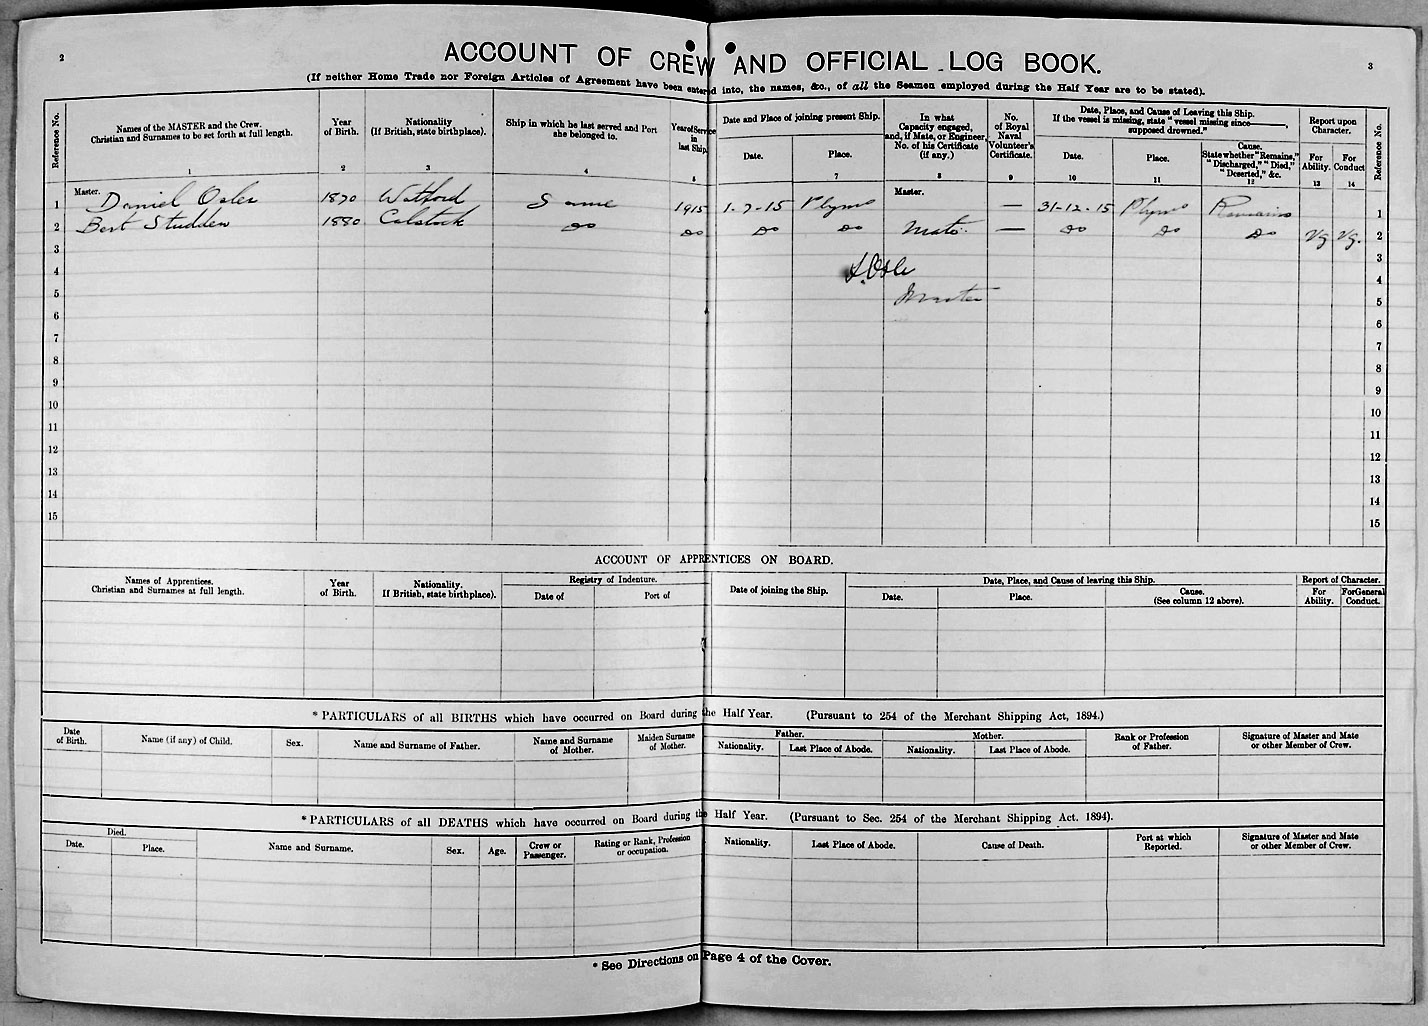 2
ACCOUNT OF CREW AND OFFICIAL LOG BOOK.
3
(If neither Home Trade nor Foreign Articles of Agreement have been entered into, the names, &c., of all the Seamen employed during the Half Year are to be stated).
Reference No.
Names of the MASTER and the Crew.
Christian and Surnames to be set forth at full length.
1
Year
of Birth.
2
Nationality
(If British, state birthplace).
3
Ship in which he last served and Port
she belonged to.
4
Year of Service
in
last Ship.
5
Date and Place of joining present Ship.
Date.
Place.
7
In what
Capacity engaged,
and, if Mate, or Engineer,
No. of his Certificate
(if any.)
8
No.
of Royal
Naval
Volunteer's
Certificate.
9
Date, Place, and Cause of Leaving this Ship.
If the vessel is missing, state "vessel missing since
supposed drowned."
Date.
10
Place.
11
Cause.
State whether "Remains,"
"Discharged," "Died,"
"Deserted," &c.
12
Report upon
Character.
For
Ability.
13
For
Conduct
14
Reference No.
1 Master. Daniel Osler 1870 Watford Same 1915 1-7-15 Plymo Master. — 31-12-15 Plymo Remains 1
2 Bert Studden 1880 Calstock Do Do Do Do Mate — Do Do Do Vg Vg. 2
3 3
4 4
Master
5 5
6 6
7 7
8 8
9 9
10 10
11 11
12 12
13 13
14 14
15 15
ACCOUNT OF APPRENTICES ON BOARD.
Names of Apprentices.
Christian and Surnames at full length.
Year
of Birth.
Nationality.
If British, state birthplace).
Registry of Indenture.
Date of
Port of
Date of joining the Ship.
Date, Place, and Cause of leaving this Ship.
Date.
Place.
Cause.
(See column 12 above).
Report of Character.
For
Ability.
For General
Conduct.
* PARTICULARS of all BIRTHS which have occurred on Board during the Half Year. (Pursuant to 254 of the Merchant Shipping Act, 1894.)
Date
of Birth.
Name (if any) of Child.
Sex.
Name and Surname of Father.
Name and Surname
of Mother.
Maiden Surname
of Mother.
Father.
Nationality.
Last Place of Abode.
Mother.
Nationality.
Last Place of Abode.
Rank or Profession
of Father.
Signature of Master and Mate
or other Member of Crew.
* PARTICULARS of all DEATHS which have occurred on Board during the Half Year. (Pursuant to Sec. 254 of the Merchant Shipping Act. 1894).
Died.
Date.
Place.
Name and Surname.
Sex.
Age.
Crew or
Passenger.
Rating or Rank, Profession
or occupation.
Nationality.
Last Place of Abode.
Cause of Death.
Port at which
Reported.
Signature of Master and Mate
or other Member of Crew.
* See Directions on Page 4 of the Cover.